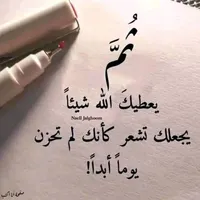 ثُمَّ
يعطيكَ الله شيئاً
يجعلك تشعر كأنك لم تحزن
يوماً أبداً!